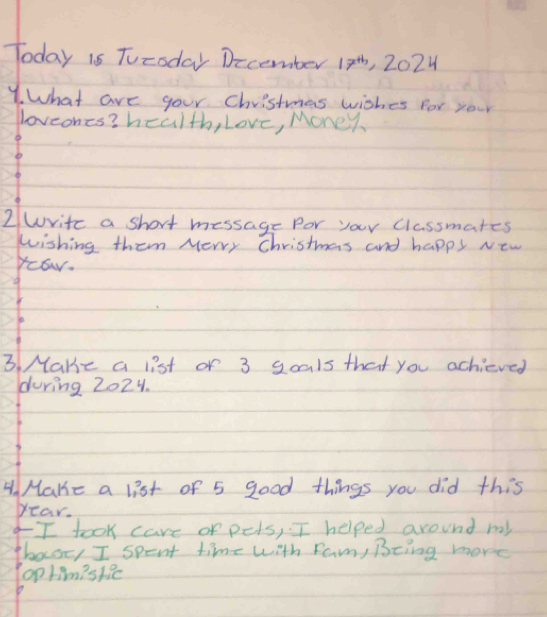 Today is Tuesday December 17th, 2024
1. What are your Christmas wishes for your
loveones? health, Love, Money.
2. Write a short message for your classmates
wishing them Merry Christmas and happy New
Year.
3. Make a list of 3 goals that you achieved
during 2024.
4. Make a list of 5 good things you did this
year.
- I took care of pets, I helped around my
house, I spent time with fam, Being more
optimistic